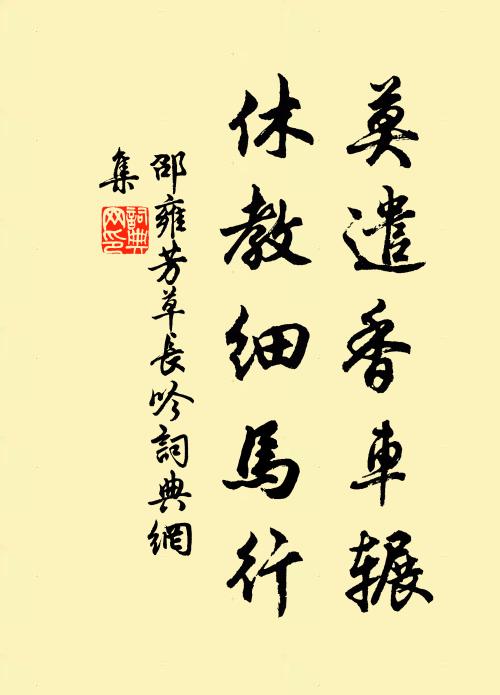 莫遣香車辗
休教細馬行
邵雍芳草長吟詞典網
集
詞典
网印